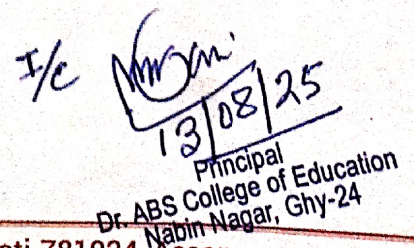 I/C
13/08/25
Principal
Dr. ABS College of Education
Nabin Nagar, Ghy-24
781024